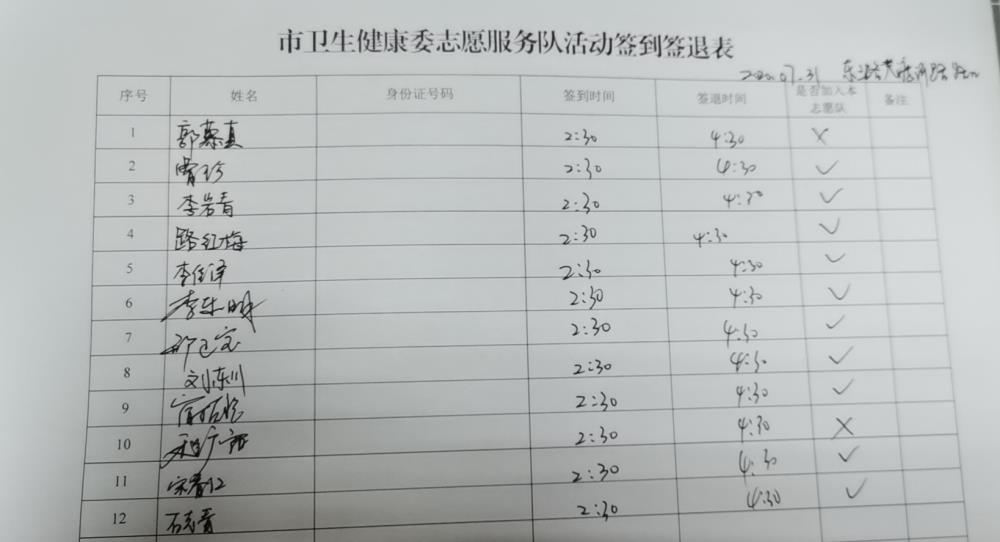 市卫生健康委志愿服务队活动签到签退表
2020.07.31
序号 姓名 身份证号码 签到时间 签退时间 是否加入本志愿队 备注
1 郭慕真 2:30 4:30 ×
2 曾珍 2:30 4:30 ✓
3 李岩青 2:30 4:30 ✓
4 路红梅 2:30 4:30 ✓
5 李佳泽 2:30 4:30 ✓
6 李东明 2:30 4:30 ✓
7 2:30 4:30 ✓
8 刘东川 2:30 4:30 ✓
9 2:30 4:30 ✓
10 2:30 4:30 ×
11 宋春江 2:30 4:30 ✓
12 石志青 2:30 4:30 ✓